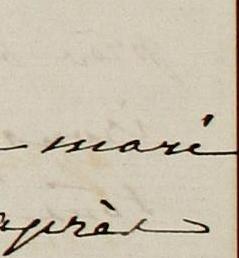 mari
après